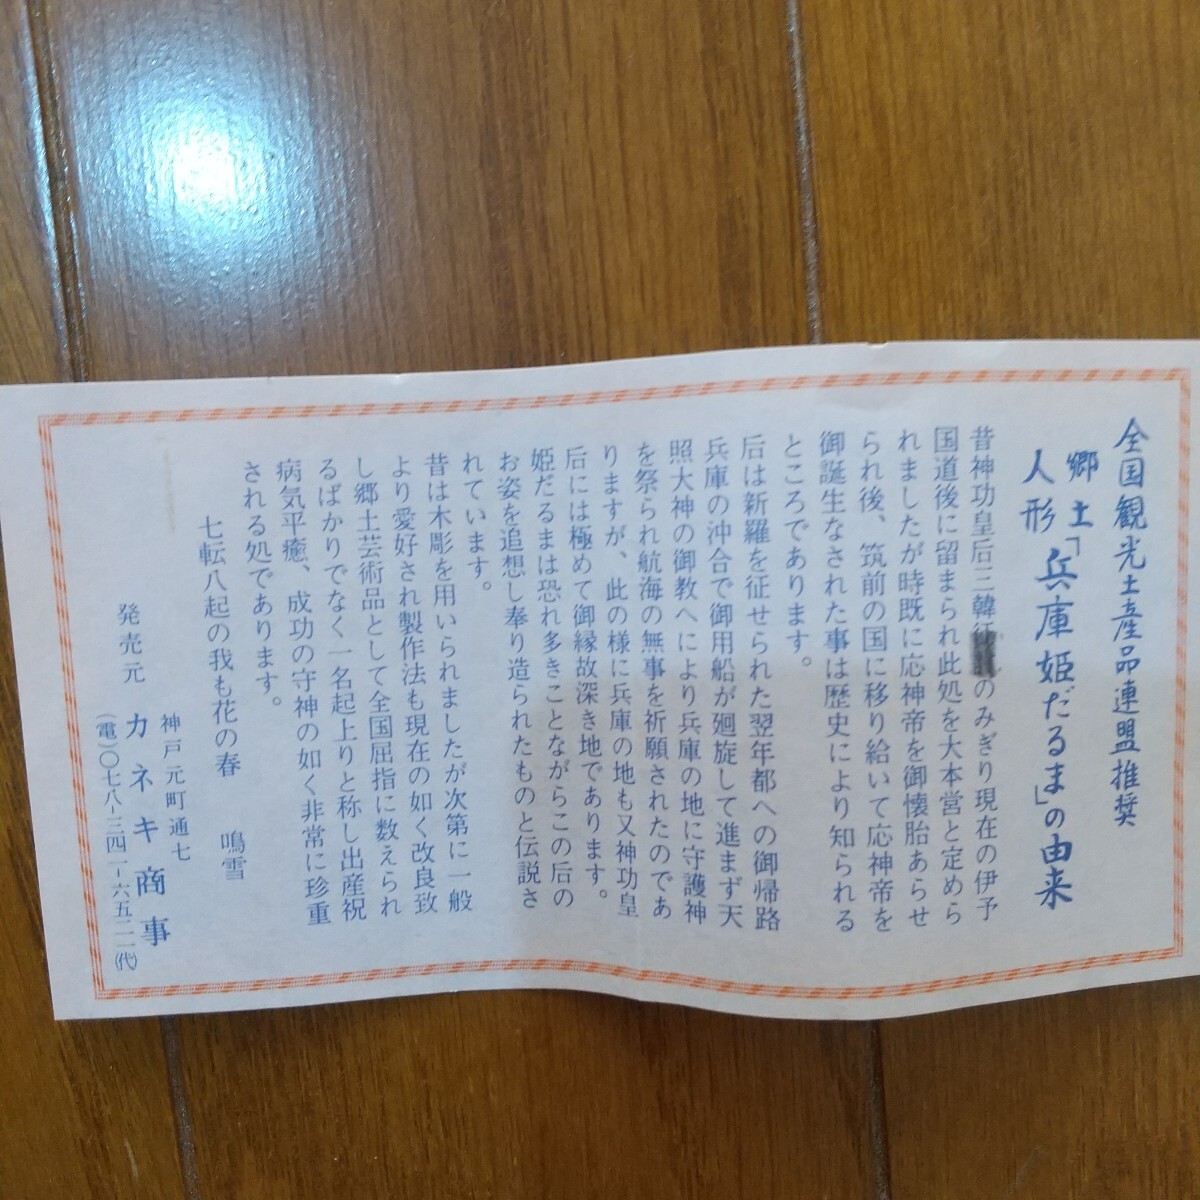 全国観光土産品連盟推奨
郷土人形「兵庫姫だるま」の由来
昔神功皇后三韓征のみぎり現在の伊予
国道後に留まられ此処を大本営と定めら
れましたが時既に応神帝を御懐胎あらせ
られ後、筑前の国に移り給いて応神帝を
御誕生なされた事は歴史により知られる
ところであります。
后は新羅を征せられた翌年都への御帰路
兵庫の沖合で御用船が廻旋して進まず天
照大神の御教へにより兵庫の地に守護神
を祭られ航海の無事を祈願されたのであ
りますが、此の様に兵庫の地も又神功皇
后には極めて御縁故深き地であります。
姫だるまは恐れ多きことながらこの后の
お姿を追想し奉り造られたものと伝説さ
れています。
昔は木彫を用いられましたが次第に一般
より愛好され製作法も現在の如く改良致
し郷土芸術品として全国屈指に数えられ
るばかりでなく一名起上りと称し出産祝
病気平癒、成功の守神の如く非常に珍重
される処であります。
七転八起の我も花の春　鳴雪
神戸元町通七
発売元　カネキ商事
(電)〇七八-三四一-六五二一(代)